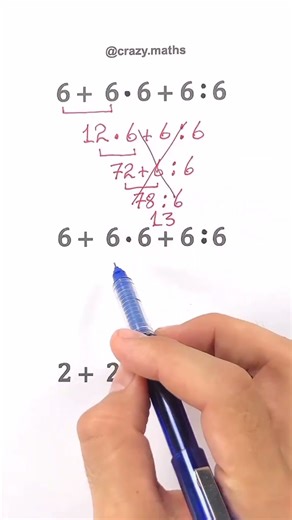 @crazy.maths
6 + 6 • 6 + 6 : 6
12 • 6 + 6 : 6
72 + 6 : 6
78 : 6
13
6 + 6 • 6 + 6 : 6
2 + 2